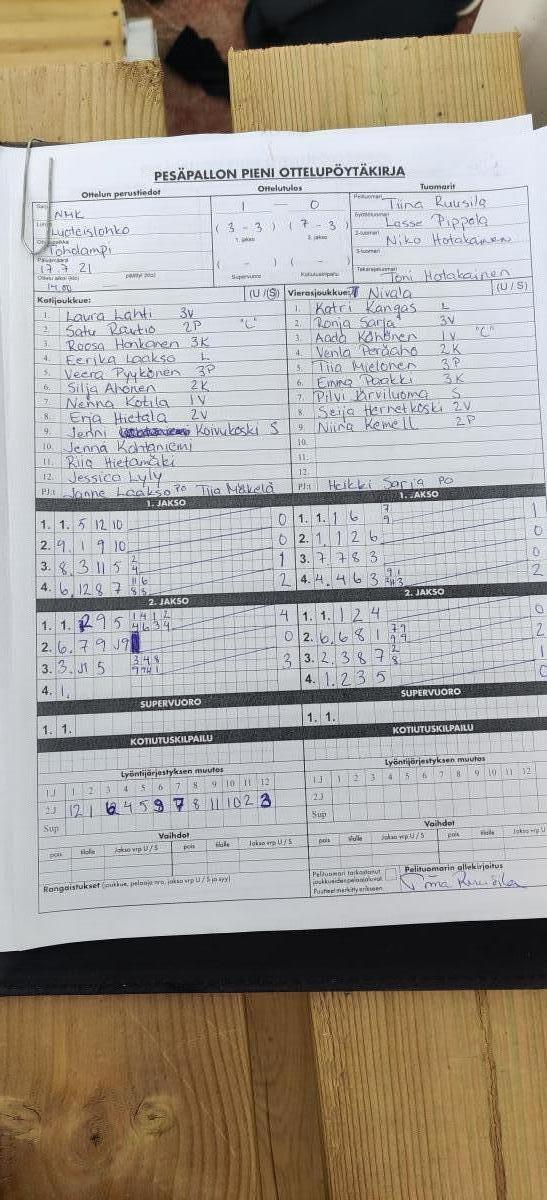 PESÄPALLON PIENI OTTELUPÖYTÄKIRJA
Ottelun perustiedot Ottelutulos Tuomarit
NMK
1 — 0
Pelituomari Tiina Ruusila
Luoteislohko
(3 - 3) (7 - 3)
Syöttötuomari Lasse Pippola
1. jakso 2. jakso
2-tuomari Niko Hotakainen
Tohdampi
Päivämäärä
17.7 21
3-tuomari
( - ) ( - )
Ottelu alkoi (klo) päättyi (klo)
Supervuoro Kotiutuskilpailu
Takarajatuomari Toni Hotakainen
14.00
Kotijoukkue: (U /(S)
1. Laura Lahti 3V
2. Satu Rautio 2P "C"
3. Roosa Honkanen 3K
4. Eerika Laakso L
5. Veera Pyykönen 3P
6. Silja Ahonen 2K
7. Nenna Kotila 1V
8. Erja Hietala 2V
9. Jenni Koivukoski S
10. Jenna Kahtaniemi
11. Riia Hietamäki
12. Jessica Lyly
PJ:t Janne Laakso PO Tija Mäkelä
Vierasjoukkue: Nivala (U / S)
1. Katri Kangas L
2. Ronja Sarja 3V
3. Aada Kähönen 1V "C"
4. Venla Peräaho 2K
5. Tiia Mielonen 3P
6. Emma Paakki 3K
7. Pilvi Järviluoma S
8. Seija Hernetkoski 2V
9. Niina Kemell 2P
10.
11.
12.
PJ:t Heikki Sarja PO
1. JAKSO
1. 1. 5 12 10 0
2. 9. 1 9 10 0
3. 8. 3 11 5 2 4 1
4. 6. 12 8 7 11 6 8 8 2
2. JAKSO
1. 1. 2 9 5 1 4 1 2 4 6 3 4 4
2. 6. 7 9 0
3. 3. 5 3 4 8 3
4. 1.
SUPERVUORO
1. 1.
KOTIUTUSKILPAILU
Lyöntijärjestyksen muutos
1.J 1 2 3 4 5 6 7 8 9 10 11 12
2.J 12 1 6 4 5 9 7 8 11 10 2 3
Sup
Vaihdot
pois tilalle Jakso vrp U / S pois tilalle Jakso vrp U / S
Rangaistukset (joukkue, pelaaja nro, jakso vrp U / S ja syy)
1. JAKSO
1. 1. 1 6 7 9 1
2. 1. 1 2 6 0
3. 7. 7 8 3 0
4. 4. 4 6 3 2
2. JAKSO
1. 1. 1 2 4 0
2. 6. 6 8 1 7 7 9 9 2
3. 2. 3 8 7 2 8 1
4. 1. 2 3 5 0
SUPERVUORO
1. 1.
KOTIUTUSKILPAILU
Lyöntijärjestyksen muutos
1.J 1 2 3 4 5 6 7 8 9 10 11 12
2.J
Sup
Vaihdot
pois tilalle Jakso vrp U / S pois tilalle Jakso vrp U
Pelituomari tarkastanut joukkueiden pelaajaluvat
Puutteet merkitty erikseen
Pelituomarin allekirjoitus
Tiina Ruusila